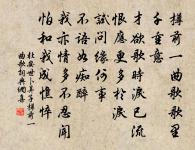 樽前一曲歌歌裏
千重意
才欲歌時淚已流
恨應更多於淚
試問緣何事
不語如痴醉
我亦情多不忍聞
怕和我成憔悴
杜安世卜算子樽前一
曲歌詞典網集